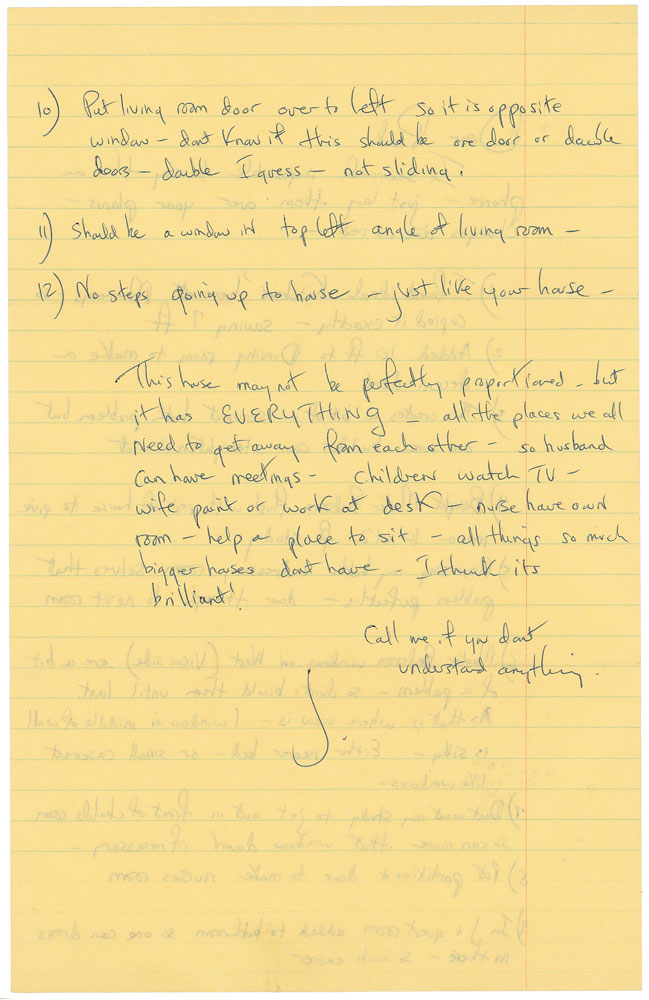 10) Put living room door over to left so it is opposite
window – dont know if this should be one door or double
doors – double I guess – not sliding.
11) Should be a window in top left angle of living room –
12) No steps going up to house – just like your house –
This house may not be perfectly proportioned – but
it has EVERYTHING – all the places we all
need to get away from each other – so husband
can have meetings – children watch TV –
wife paint or work at desk – nurse have own
room – help a place to sit – all things so much
bigger houses dont have – I think its
brilliant!
Call me if you dont
understand anything.
J.